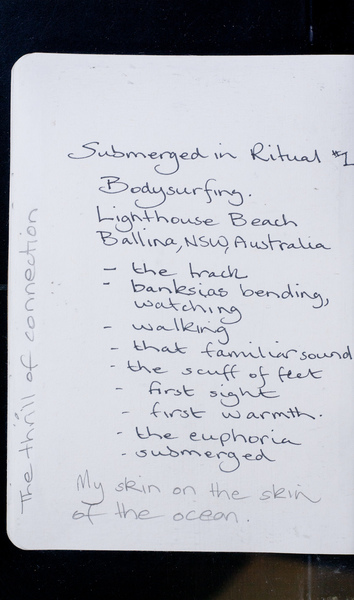 Submerged in Ritual #1
Bodysurfing.
Lighthouse Beach
Ballina, NSW, Australia
- the track
- banksias bending,
watching
- walking
- that familiar sound
- the scuff of feet
- first sight
- first warmth.
- the euphoria
- submerged
My skin on the skin
of the ocean.
The thrill of connection